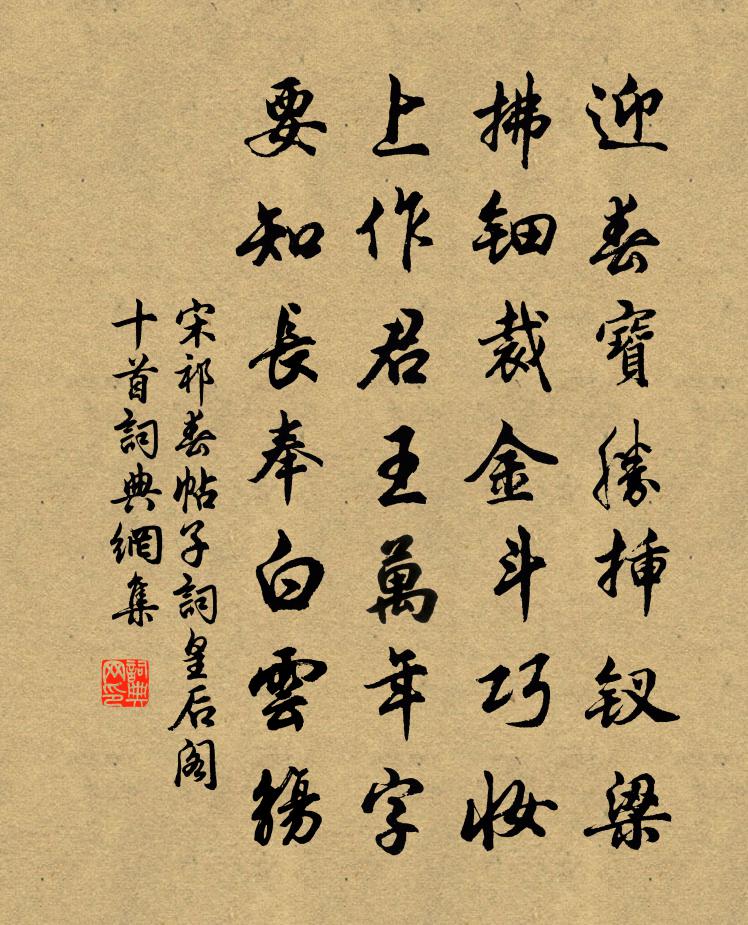 迎春寶勝插釵梁
拂鈿裁金斗巧妝
上作君王萬年字
要知長奉白雲觴
宋祁春帖子詞皇后閣
十首詞典網集
詞典
网印